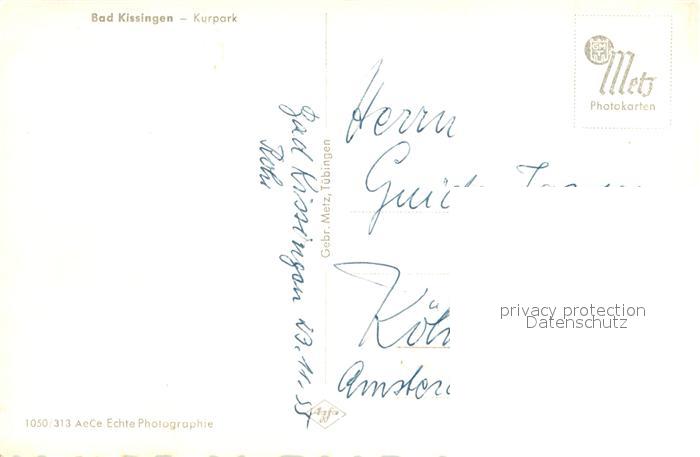 Bad Kissingen – Kurpark
GM
Metz
Photokarten
Herrn
Köln
Gebr. Metz, Tübingen
Bad Kissingen 23.11.55
Rohr
privacy protection
Datenschutz
1050/313 AeCe Echte Photographie
Agfa